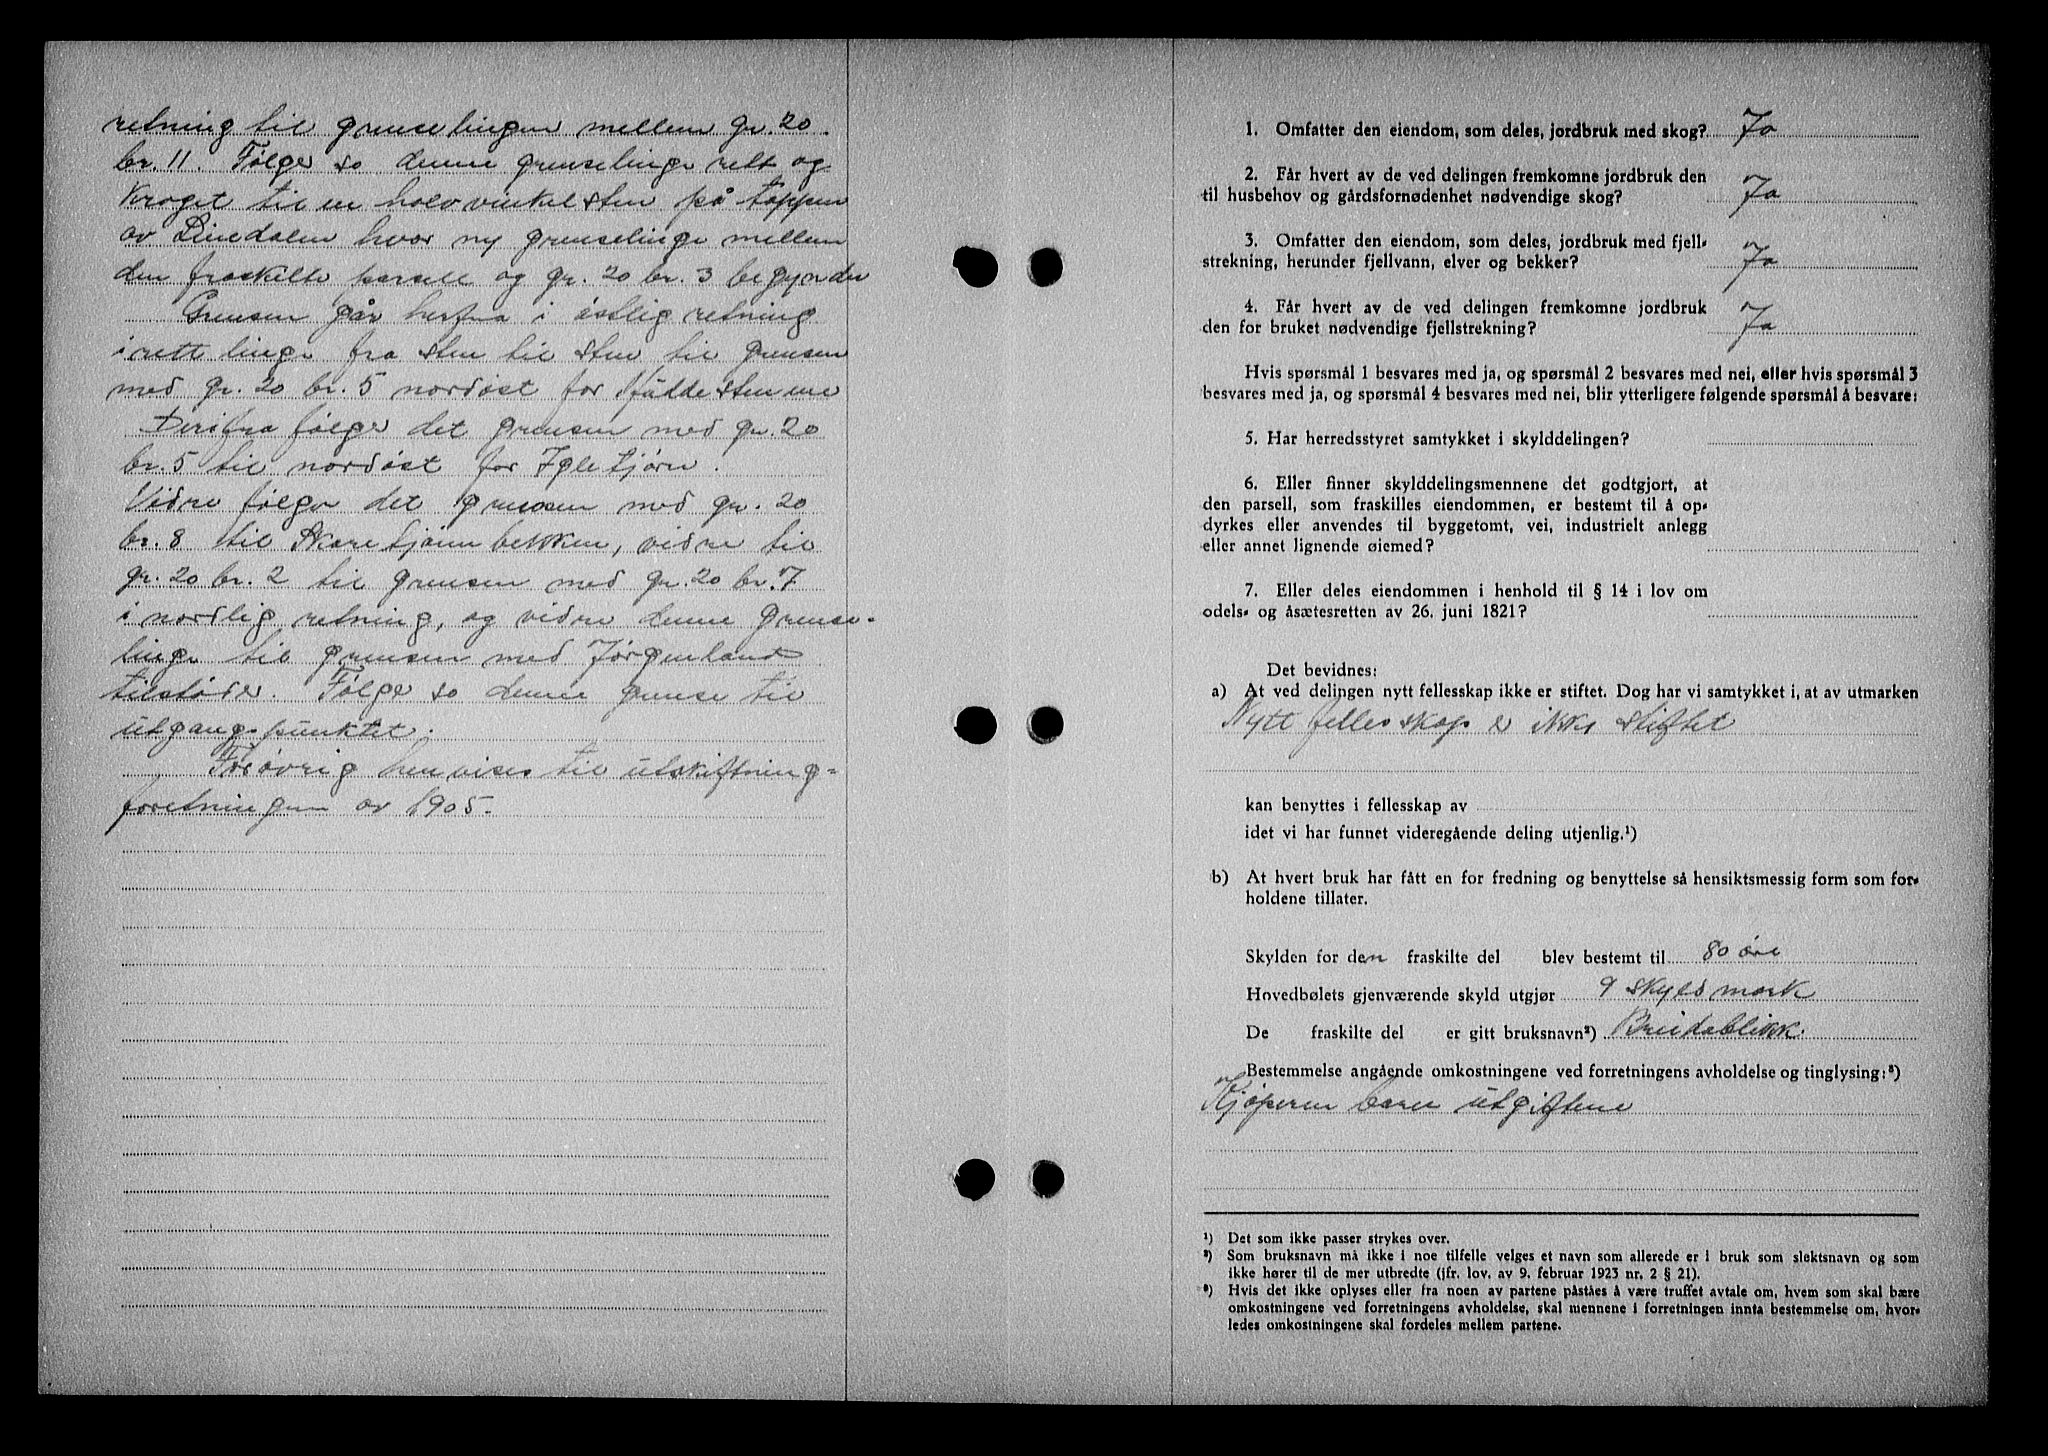 retning til grenselingen mellem gr. 20
br. 11. Følger so denne grenselinge rett og
kroget til en halv vinkelsten på toppen
av Linedalen hvor ny grenselinge mellem
den fraskilte parsell og gr. 20 br. 3 begynder
Grensen går herfra i østlig retning
i rett linge fra sten til sten til grensen
med gr. 20 br. 5 nordøst for
Derifra følger det grensen med gr. 20
br. 5 til nordøst for Igletjørn.
Vidre følger det grensen med gr. 20
br. 8 til Skaretjønnbekken, vidre til
gr. 20 br. 2 til grensen med gr. 20 br. 7
i nordlig retning, og vidre denne grense-
linge til grensen med Jørgenland
tilstøder. Følger so denne grense til
utgangspunktet.
Forøvrig henvises til utskiftning-
forretningen av 1905.
1. Omfatter den eiendom, som deles, jordbruk med skog? Ja
2. Får hvert av de ved delingen fremkomne jordbruk den
til husbehov og gårdsfornødenhet nødvendige skog? Ja
3. Omfatter den eiendom, som deles, jordbruk med fjell-
strekning, herunder fjellvann, elver og bekker? Ja
4. Får hvert av de ved delingen fremkomne jordbruk
den for bruket nødvendige fjellstrekning? Ja
Hvis spørsmål 1 besvares med ja, og spørsmål 2 besvares med nei, eller hvis spørsmål 3
besvares med ja, og spørsmål 4 besvares med nei, blir ytterligere følgende spørsmål å besvare:
5. Har herredsstyret samtykket i skylddelingen?
6. Eller finner skylddelingsmennene det godtgjort, at
den parsell, som fraskilles eiendommen, er bestemt til å op-
dyrkes eller anvendes til byggetomt, vei, industrielt anlegg
eller annet lignende øiemed?
7. Eller deles eiendommen i henhold til § 14 i lov om
odels- og åsætesretten av 26. juni 1821?
Det bevidnes:
a) At ved delingen nytt fellesskap ikke er stiftet. Dog har vi samtykket i, at av utmarken
Nytt fellesskap er ikke stiftet
kan benyttes i fellesskap av
idet vi har funnet videregående deling utjenlig.¹)
b) At hvert bruk har fått en for fredning og benyttelse så hensiktsmessig form som for-
holdene tillater.
Skylden for den fraskilte del blev bestemt til 80 øre
Hovedbølets gjenværende skyld utgjør 9 skyldmark
De fraskilte del er gitt bruksnavn²) Breidablikk.
Bestemmelse angående omkostningene ved forretningens avholdelse og tinglysing:³)
Kjøperen bærer utgiftene
¹) Det som ikke passer strykes over.
²) Som bruksnavn må ikke i noe tilfelle velges et navn som allerede er i bruk som slektsnavn og som
ikke hører til de mer utbredte (jfr. lov. av 9. februar 1923 nr. 2 § 21).
³) Hvis det ikke oplyses eller fra noen av partene påståes å være truffet avtale om, hvem som skal bære
omkostningene ved forretningens avholdelse, skal mennene i forretningen innta bestemmelse om, hvor-
ledes omkostningene skal fordeles mellem partene.